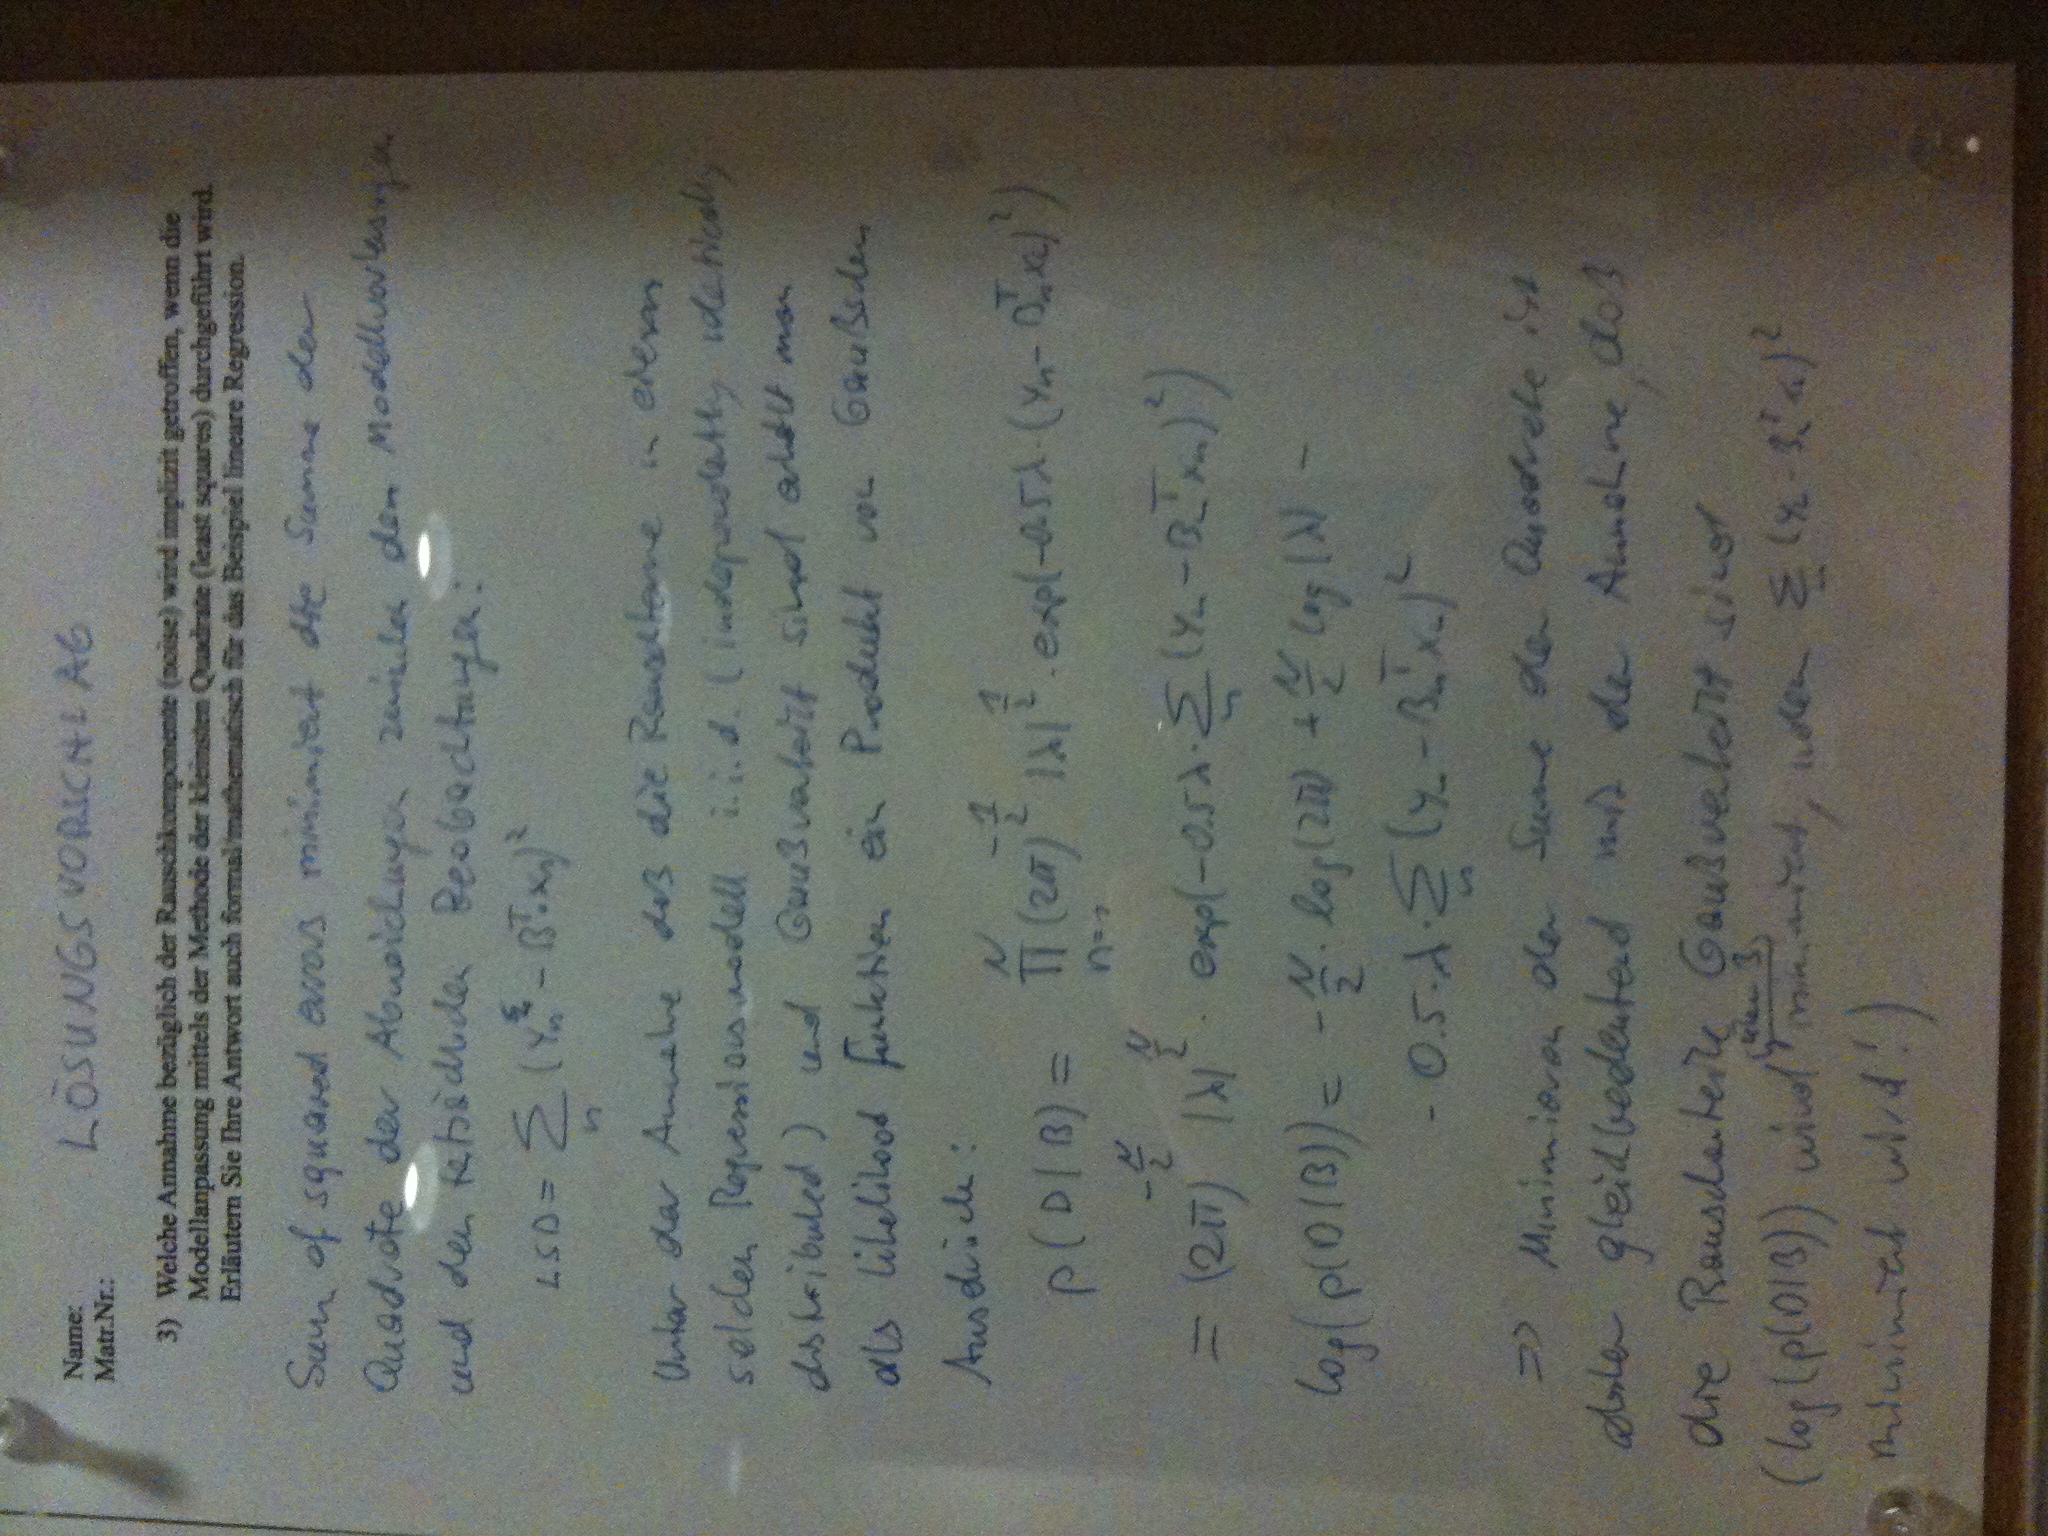 LÖSUNGSVORSCHL AG
Name:
Matr.Nr.:
3) Welche Annahme bezüglich der Rauschkomponente (noise) wird implizit getroffen, wenn die
Modellanpassung mittels der Methode der kleinsten Quadrate (least squares) durchgeführt wird.
Erläutern Sie Ihre Antwort auch formal/mathematisch für das Beispiel lineare Regression.
Sum of squared errors minimiert die Summe der
Quadrate der Abweichungen zwischen den Modellvorhersagen
und den tatsächlichen Beobachtungen:
LSD = Σ_n (y_n - B^T·x_n)^2
Unter der Annahme das die Rauschterme in einem
solchen Regressionsmodell i.i.d. (independently identically
distributed) und Gaußverteilt sind erhält man
als likelihood Funktion ein Produkt von Gaußschen
Ausdrücken:
P(D|B) = ∏_{n=1}^{N} (2π)^{-1/2} |λ|^{1/2} · exp(-0.5λ·(y_n - B_n^T x_n)^2)
= (2π)^{-N/2} |λ|^{N/2} · exp(-0.5λ·Σ_n (y_n - B_n^T x_n)^2)
log(p(D|B)) = -N/2 · log(2π) + N/2 log|λ| -
- 0.5·λ·Σ_n (y_n - B_n^T x_n)^2
⇒ Minimieren der Summe der Quadrate ist
daher gleichbedeutend mit der Annahme, das
die Rauschanteile Gaußverteilt sind
(log(p(D|B)) wird minimiert, indem Σ_n (y_n - B_n^T x_n)^2
minimiert wird!)